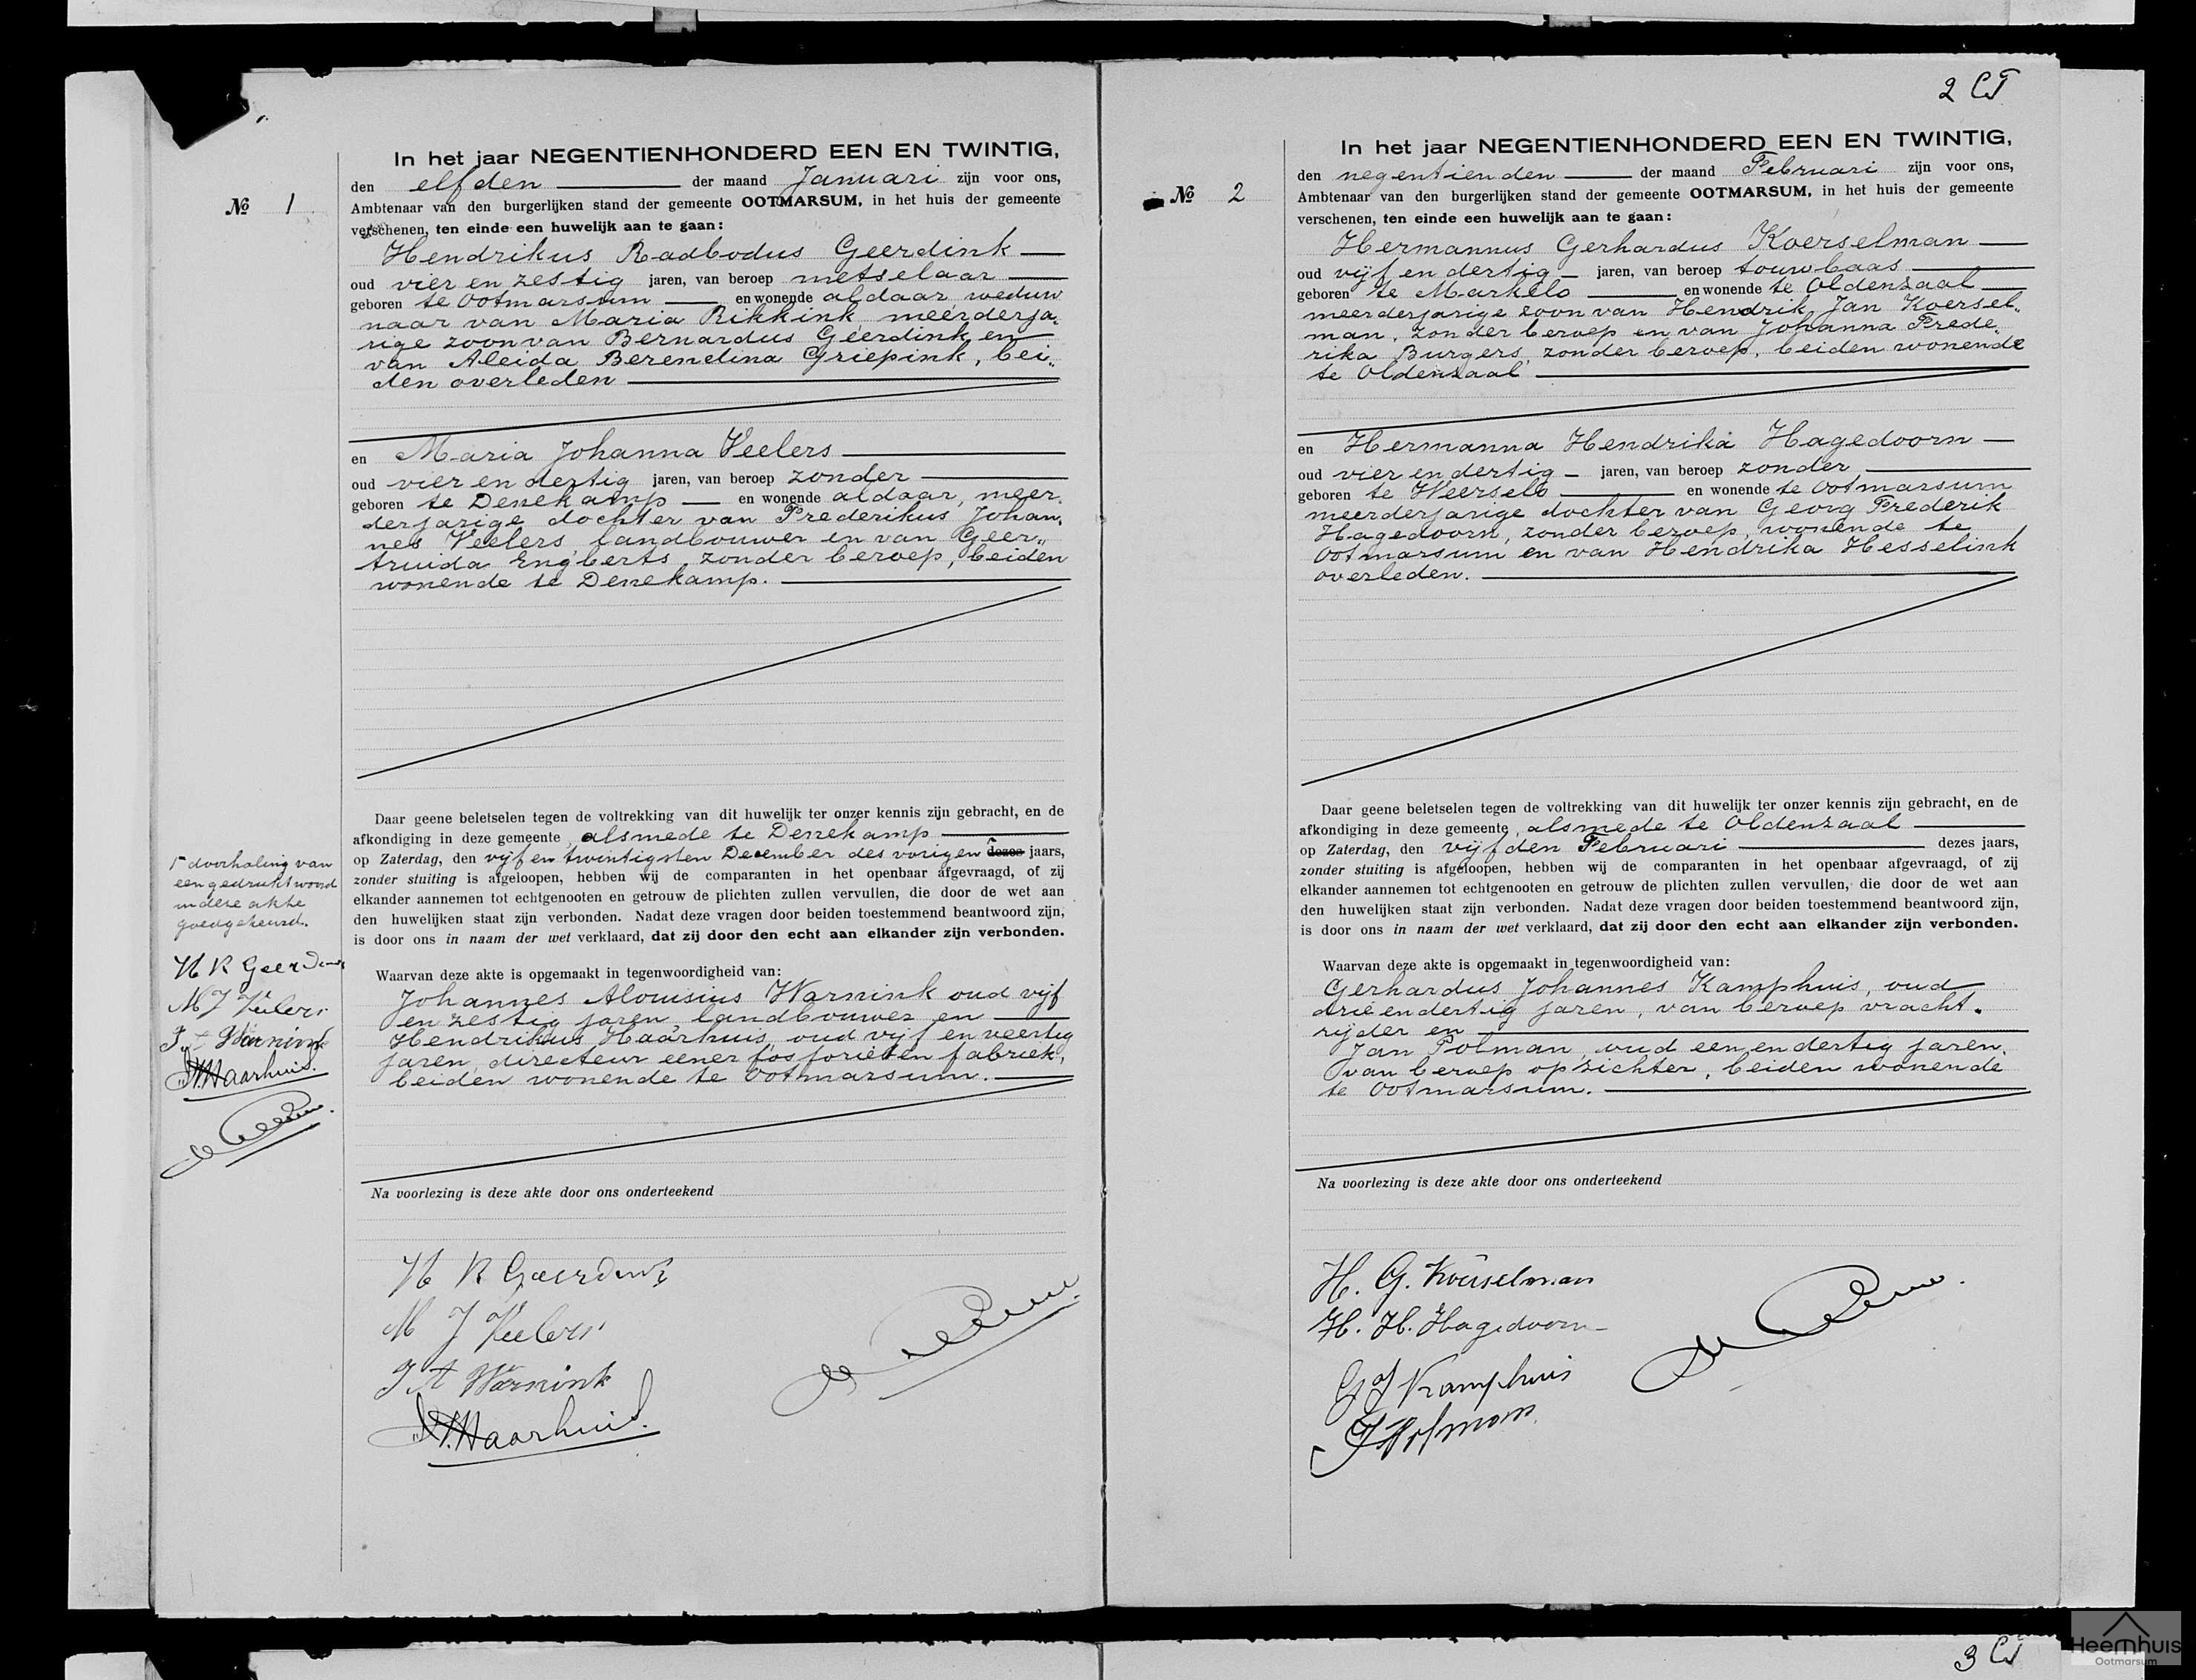 2 CT
In het jaar NEGENTIENHONDERD EEN EN TWINTIG,
den elfden der maand Januari zijn voor ons,
№ 1
Ambtenaar van den burgerlijken stand der gemeente OOTMARSUM, in het huis der gemeente
verschenen, ten einde een huwelijk aan te gaan:
Hendrikus Radbodus Geerdink
oud vier en zestig jaren, van beroep metselaar
geboren te Ootmarsum en wonende aldaar, weduw
naar van Maria Rikkink meerderja„
rige zoon van Bernardus Geerdink en
van Aleida Berendina Griepink, bei„
den overleden
en Maria Johanna Veelers
oud vier en dertig jaren, van beroep zonder
geboren te Denekamp en wonende aldaar, meer„
derjarige dochter van Frederikus Johan„
nes Veelers, landbouwer en van Geer„
truida Engberts, zonder beroep, beiden
wonende te Denekamp.
Daar geene beletselen tegen de voltrekking van dit huwelijk ter onzer kennis zijn gebracht, en de
afkondiging in deze gemeente, alsmede te Denekamp
op Zaterdag, den vijf en twintigsten December des vorigen dezes jaars,
zonder stuiting is afgeloopen, hebben wij de comparanten in het openbaar afgevraagd, of zij
elkander aannemen tot echtgenooten en getrouw de plichten zullen vervullen, die door de wet aan
den huwelijken staat zijn verbonden. Nadat deze vragen door beiden toestemmend beantwoord zijn,
is door ons in naam der wet verklaard, dat zij door den echt aan elkander zijn verbonden.
Waarvan deze akte is opgemaakt in tegenwoordigheid van:
Johannes Alouisius Warnink oud vijf
en zestig jaren, landbouwer en
Hendrikus Haarhuis, oud vijf en veertig
jaren, directeur eener fosforieten fabriek,
beiden wonende te Ootmarsum.
Na voorlezing is deze akte door ons onderteekend
H R Geerdink
M J Veelers
J A Warnink
Haarhuis.
doorhaling van
een gedrukt woord
in deze akte
goedgekeurd.
H R Geerdink
M J Veelers
J A Warnink
Haarhuis.
In het jaar NEGENTIENHONDERD EEN EN TWINTIG,
den negentienden der maand Februari zijn voor ons,
№ 2
Ambtenaar van den burgerlijken stand der gemeente OOTMARSUM, in het huis der gemeente
verschenen, ten einde een huwelijk aan te gaan:
Hermannus Gerhardus Koerselman
oud vijf en dertig jaren, van beroep touwbaas
geboren te Markelo en wonende te Oldenzaal
meerderjarige zoon van Hendrik Jan Koersel„
man, zonder beroep en van Johanna Frede„
rika Burgers, zonder beroep, beiden wonende
te Oldenzaal
en Hermanna Hendrika Hagedoorn
oud vier en dertig jaren, van beroep zonder
geboren te Weerselo en wonende te Ootmarsum
meerderjarige dochter van Georg Frederik
Hagedoorn, zonder beroep, wonende te
Ootmarsum en van Hendrika Hesselink
overleden.
Daar geene beletselen tegen de voltrekking van dit huwelijk ter onzer kennis zijn gebracht, en de
afkondiging in deze gemeente, alsmede te Oldenzaal
op Zaterdag, den vijfden Februari dezes jaars,
zonder stuiting is afgeloopen, hebben wij de comparanten in het openbaar afgevraagd, of zij
elkander aannemen tot echtgenooten en getrouw de plichten zullen vervullen, die door de wet aan
den huwelijken staat zijn verbonden. Nadat deze vragen door beiden toestemmend beantwoord zijn,
is door ons in naam der wet verklaard, dat zij door den echt aan elkander zijn verbonden.
Waarvan deze akte is opgemaakt in tegenwoordigheid van:
Gerhardus Johannes Kamphuis, oud
drie en dertig jaren, van beroep vracht„
rijder en
Jan Polman, oud een en dertig jaren,
van beroep opzichter, beiden wonende
te Ootmarsum.
Na voorlezing is deze akte door ons onderteekend
H. G. Koerselman
H. H. Hagedoorn
G J Kamphuis
J Polman
3 CT
Heemhuis
Ootmarsum